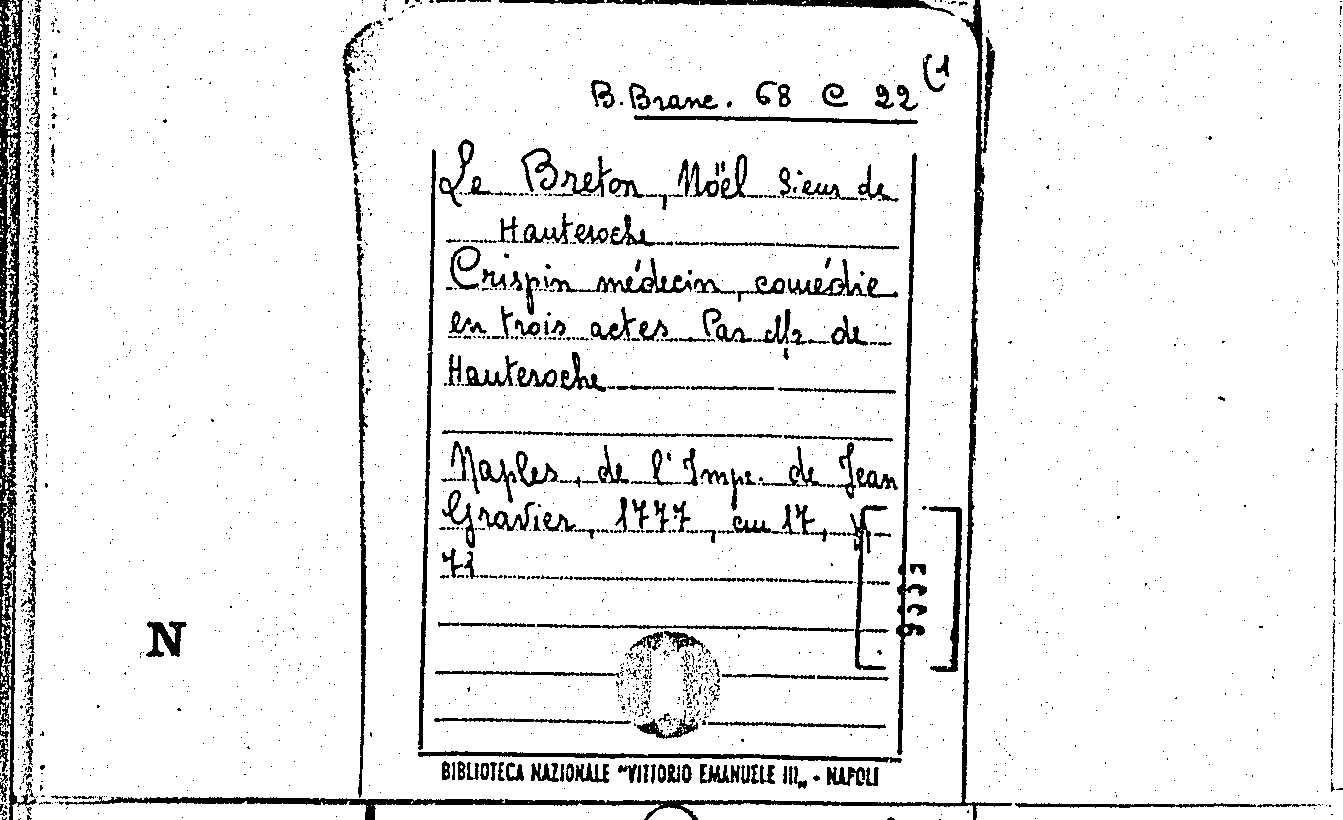 B. Branc. 68 C 22 (1
Le Breton, Noël Sieur de
Hauteroche
Crispin médecin, comédie
en trois actes. Par Mr. de
Hauteroche
Naples, de l'Impr. de Jean
Gravier, 1777, cm 17, pp
71
N
BIBLIOTECA NAZIONALE "VITTORIO EMANUELE III„ - NAPOLI